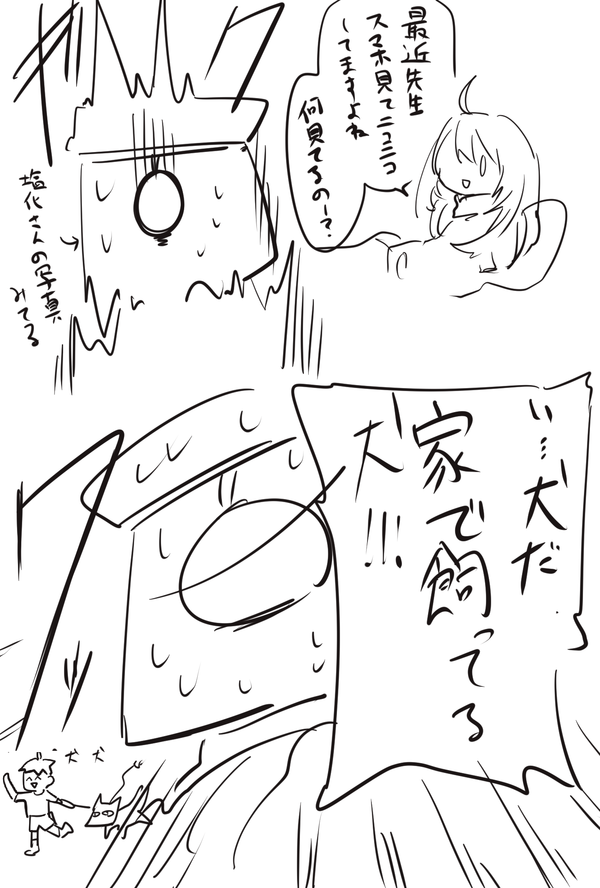 最近先生
スマホ見てニコニコ
してますよね
何見てるのー?
塩化さんの写真
みてる
い…犬だ
家で飼ってる
犬!!!
犬犬